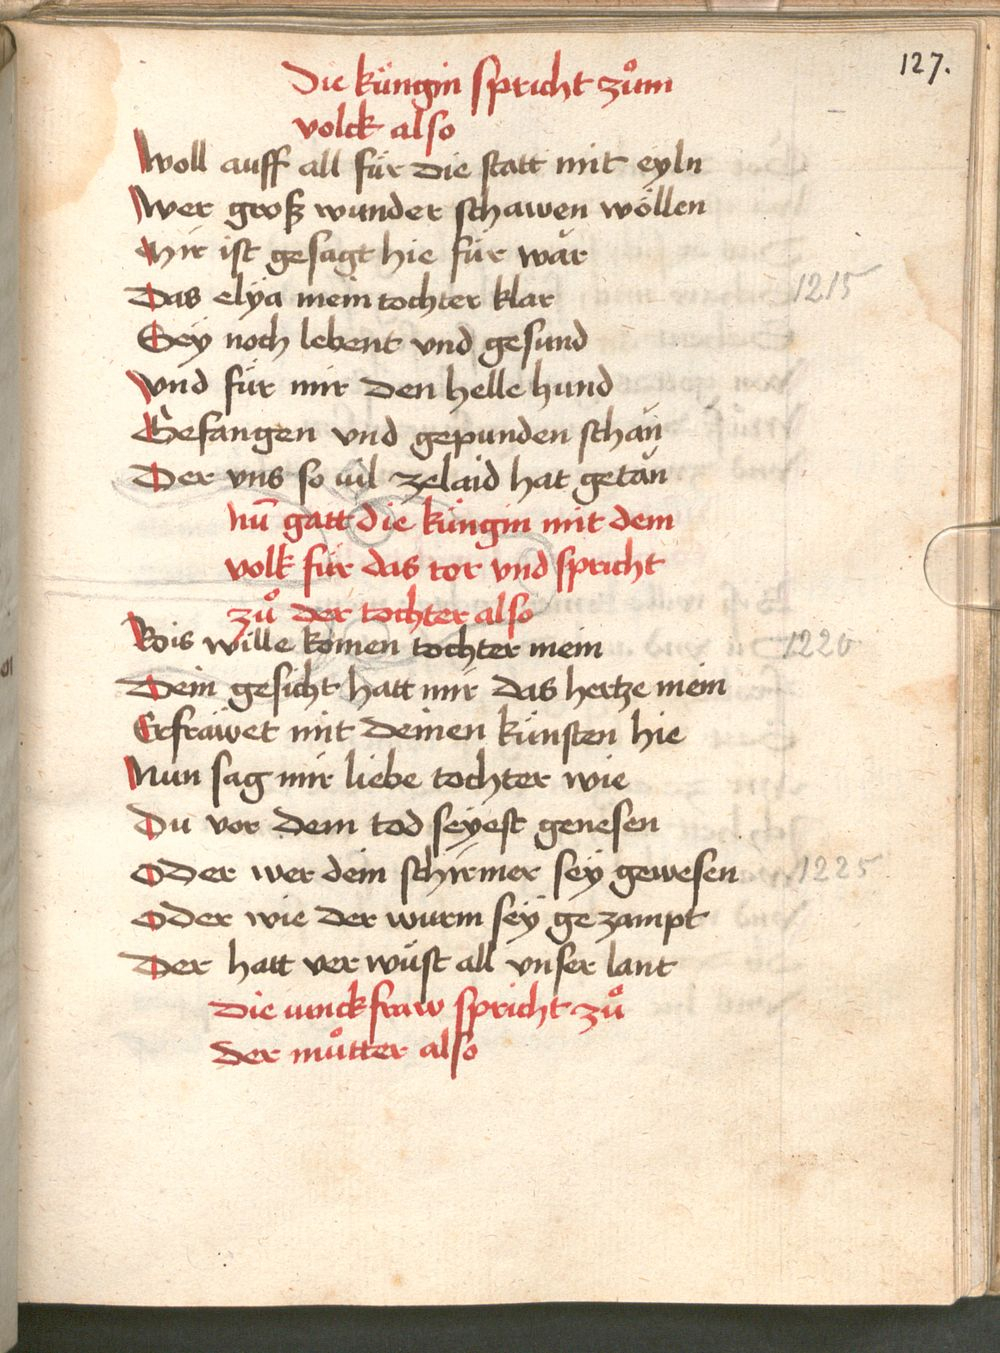 127.
Die küngin spricht zuͦm
volck also
Woll auff all für die statt mit eyln
Wer groß wunder schawen wöllen
Mir ist gesagt hie für wär
1215
Das elya mein tochter klar
Sey noch lebent vnd gesund
vnd für mir den helle hund
Gefangen vnd gepunden schän
Der vns so vil zelaid hat getän
Nu̅ gatt die küngin mit dem
volk für das tor vnd spricht
zuͦ der tochter also
Bois wille komen tochter mein
1220
Dein gesicht hatt mir das hertze mein
Erfräwet mit deinen künsten hie
Nun sag mir liebe tochter wie
Du vor dem tod seyest genesen
Oder wer dein schirmer sey gewesen
1225
Oder wie der wurm sey ge zampt
Der hatt ver wüst all vnser lant
Die iunckfraw spricht zuͦ
der muͦtter also